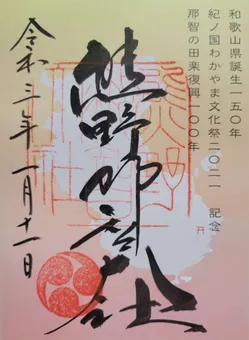 和歌山県誕生一五〇年
紀ノ国わかやま文化祭二〇二一 記念
那智の田楽復興一〇〇年
熊野那智大社
令和三年一月十一日